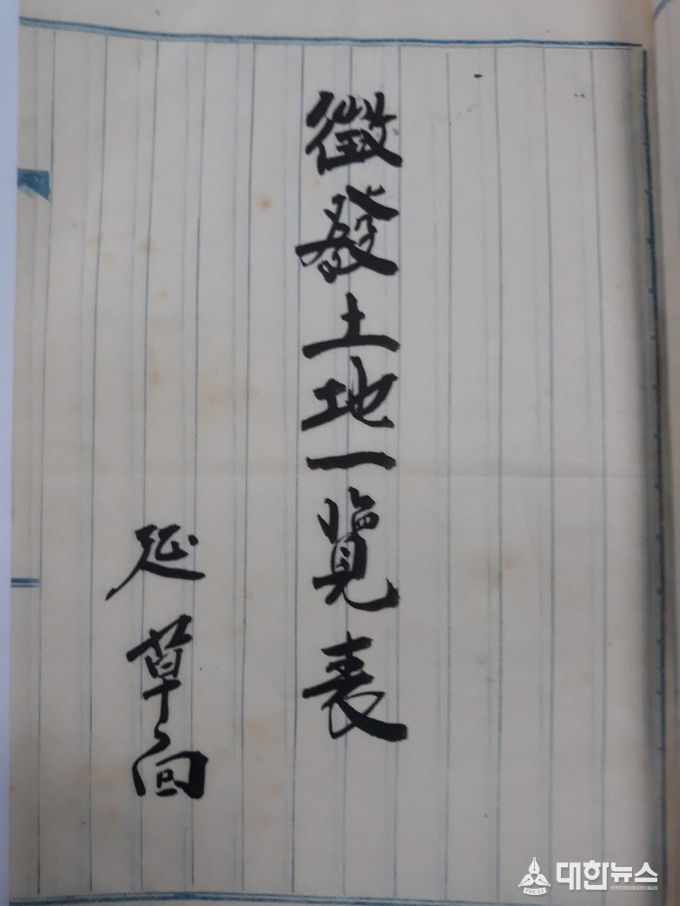 徵發土地一覽表
延草面
대한뉴스